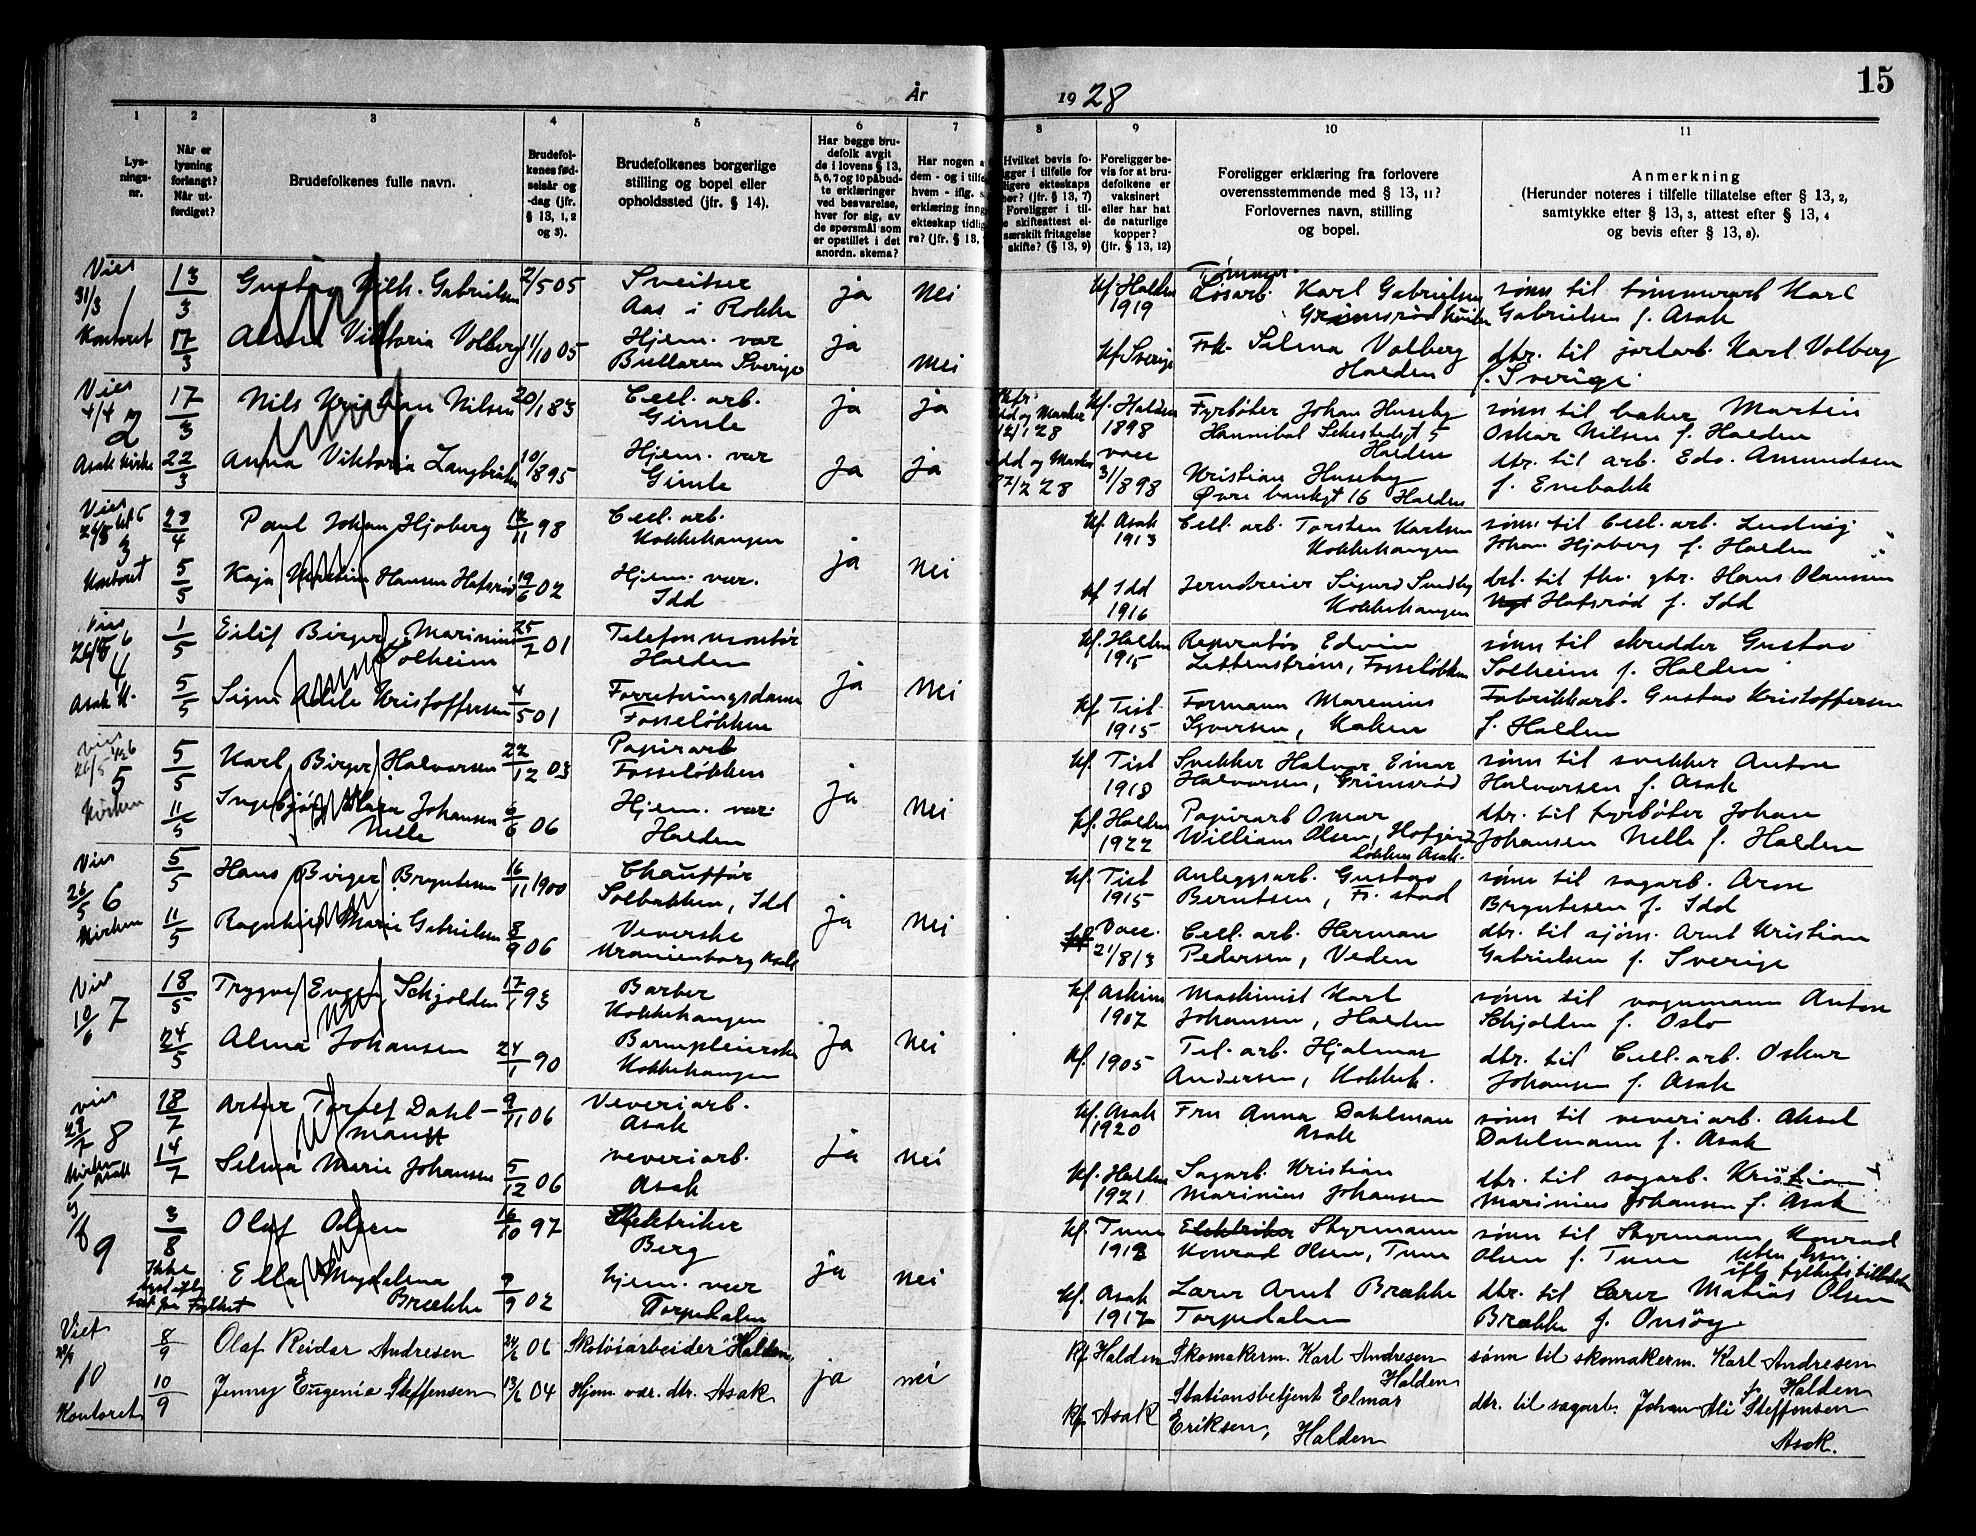 År
19 28
15
1
2
3
4
5
6
7
8
9
10
11
Lys-
nings-
nr.
Når er
lysning
forlangt?
Når ut-
ferdiget?
Brudefolkenes fulle navn.
Brudefol-
kenes fød-
selsår og
-dag (jfr.
§ 13, 1, 2
og 3).
Brudefolkenes borgerlige
stilling og bopel eller
opholdssted (jfr. § 14).
Har begge bru-
defolk avgit
de i lovens § 13,
5, 6, 7 og 10 påbud-
te erklæringer
ved besvarelse,
hver for sig, av
de spørsmål som
er opstillet i det
anordn. skema?
Har nogen a
dem - og i tilfe
hvem - iflg. s.
erklæring inng
ekteskap tidlig
re? (jfr. § 13,
Hvilket bevis fo-
gger i tilfelle for
ligere ekteskaps
her? (jfr. § 13, 7)
Foreligger i til-
e skifteattest el-
særskilt fritagelse
skifte? (§ 13, 9)
Foreligger be-
vis for at bru-
defolkene er
vaksinert
eller har hat
de naturlige
kopper?
(jfr. § 13, 12)
Foreligger erklæring fra forlovere
overensstemmende med § 13, 11?
Forlovernes navn, stilling
og bopel.
Anmerkning
(Herunder noteres i tilfelle tillatelse efter § 13, 2,
samtykke efter § 13, 3, attest efter § 13, 4
og bevis efter § 13, 8).
Viet
31/3
1
Kontoret
13/3
17/3
Gustav Vilh. Gabrielsen
2/5 05
Sveitser
Aas i Rokke
ja
nei
Kf. Halden
1919
Tømmer.
Løsarb. Karl Gabrielsen
Grimsrød
sønn til tømmerarb Karl
Gabrielsen f. Asak
Viktoria Volberg
11/10 05
Hjem. vær
Bullaren Sverige
ja
nei
Kf. Sverige
Frk. Selma Volberg
Halden
dtr. til jordarb. Karl Volberg
f. Sverige.
Vies
4/4
2
Asak kirke
17/3
22/3
Nils Kristian Nilsen
20/1 83
Cell. arb.
Gimle
ja
ja
Idd og Marker
12/1 28
Kf. Halden
1898
Fyrbøter Johan Huseby
Hannibal Sehestedsgt 5
Halden
sønn til baker Martin
Oskar Nilsen f. Halden
Anna Viktoria Langbråten
10/8 95
Hjem. vær
Gimle
ja
ja
Idd og Marker
27/2 28
vacc
31/8 98
Kristian Huseby
Øvre bankgt 16 Halden
dtr. til arb. Edv. Amundsen
f. Enebakk
Vies
26/5
3
Kontoret
23/4
5/5
Paul Johan Hjøberg
12/11 98
Cell. arb.
Kokkehaugen
ja
nei
Kf. Asak
1913
Cell. arb. Torsten Karlsen
Kokkehaugen
sønn til Cell. arb. Ludvig
Johan Hjøberg f. Halden
Kaja Hansen Hafsrød
19/6 02
Hjem. vær.
Idd
Kf. Idd
1916
Jerndreier Sigurd Sundby
Kokkehaugen
dtr. til fhv. gbr. Hans Olaussen
Hafsrød f. Idd
Vies
26/5
4
Asak K.
1/5
5/5
Eilif Birger Marinius
Solheim
25/7 01
Telefonmontør
Halden
ja
nei
Kf. Halden
1915
Reparatør Edvin
Zettenstrøm, Fosseløkken
sønn til skredder Gustav
Solheim f. Halden
Signe Adele Kristoffersen
4/5 01
Forretningsdame
Fosseløkken
Kf. Tist.
1915
Formann Marenius
Syversen, Kaken
Fabrikkarb. Gustav Kristoffersen
f. Halden
vies
26/5
5
Kirken
5/5
11/5
Karl Birger Halvorsen
22/12 03
Papirarb
Fosseløkken
ja
nei
Kf. Tist
1918
Snekker Halvor Einar
Halvorsen, Grimsrød
sønn til snekker Anton
Halvorsen f. Asak
Ingebjørg Klara Johansen
Nelle
6/6 06
Hjem. vær.
Halden
Kf. Halden
1922
Papirarb Omar
William Olsen, Hofgård
løkken Asak.
dtr. til fyrbøter Johan
Johansen Nelle f. Halden
Vies
26/5
6
Kirken
5/5
11/5
Hans Birger Bryntesen
16/11 1900
Chauffør
Solbakken, Idd
ja
nei
Kf. Tist
1915
Anleggsarb. Gustav
Berntsen, Fr. stad
sønn til sagarb. Arne
Bryntesen f. Idd
Ragnhild Marie Gabrielsen
8/9 06
Veverske
Uranienborg Asak
Vacc.
21/8 13
Cell. arb. Herman
Pedersen, Veden
dtr. til sjøm. Arnt Kristian
Gabrielsen f. Sverige
Vies
10/6
7
18/5
24/5
Trygve Schjolden
17/1 93
Barber
Kokkehaugen
ja
nei
Kf. Askim
1907
Maskinist Karl
Johansen, Halden
sønn til vognmann Anton
Schjolden f. Oslo
Alma Johansen
24/1 90
Barnepleierske
Kokkehaugen
Kf. 1905
Tel. arb. Hjalmar
Andersen, Kokkeh.
dtr. til Cell. arb. Oskar
Johansen f. Asak
vies
29/7
8
Kirken
Asak
18/7
14/7
Artur Toralf Dahl-
mann
9/11 06
Veveriarb.
Asak
ja
nei
Kf. Asak
1920
Fru Anna Dahlman
Asak
sønn til veveriarb. Aksel
Dahlmann f. Asak
Selma Marie Johansen
5/12 06
veveriarb.
Asak
Kf. Halden
1921
Sagarb. Kristian
Marinius Johansen
dtr. til sagarb. Kristian
Marinius Johansen f. Asak
9
3/8
Ikke
Olaf Olsen
16/10 97
Elektriker
Berg
ja
nei
Kf. Tune
1912
Elektriker Styrmann
Konrad Olsen, Tune
sønn til Styrmann Konrad
Olsen f. Tune
Ella Magdalena
Brække
9/9 02
hjem. vær
Torpedalen
Kf. Asak
1917
Lærer Arnt Brække
Torpedalen
dtr. til Lærer Matias Olsen
Brække f. Onsøy
Viet
10
Kontoret
8/9
10/9
Olaf Reidar Andresen
24/6 06
Skotøiarbeider Halden,
ja
nei
Kf Halden
Skomakerm. Karl Andresen
Halden
sønn til skomakerm. Karl Andresen
f. Halden
Jenny Eugenie Steffensen
13/6 04
Hjem. vær. dtr. Asak
Kf. Asak
Stationsbetjent Elmar
Eriksen, Halden
dtr. til sagarb. Johan Ali Steffensen
Asak.